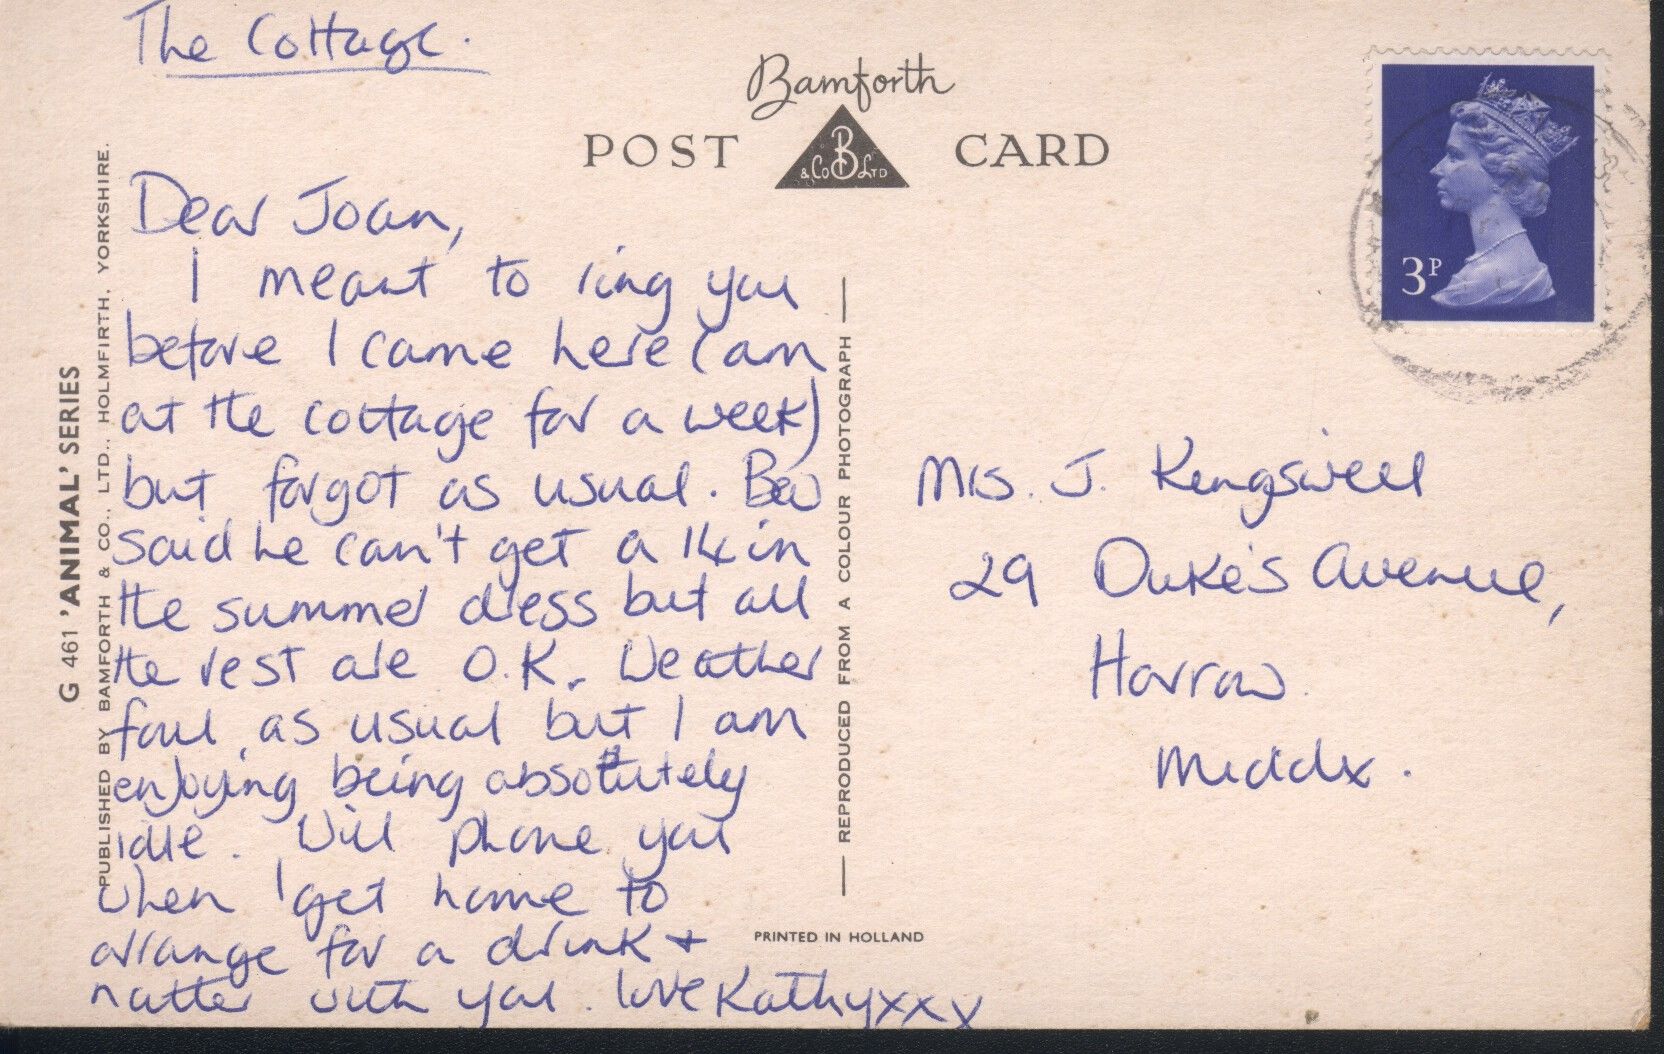 The Cottage.
Bamforth
POST CARD
B
& Co LTD
3P
Dear Joan,
I meant to ring you
before I came here (am
at the cottage for a week)
but forgot as usual. Bev
said he can't get a 14 in
the summer dress but all
the rest are O.K. Weather
foul, as usual but I am
enjoying being absolutely
idle. Will phone you
when I get home to
arrange for a drink +
natter with you. love Kathy xxx
Mrs. J. Kengswell
29 Duke's Avenue,
Harrow.
Middx.
G 461 'ANIMAL' SERIES
PUBLISHED BY BAMFORTH & CO., LTD., HOLMFIRTH, YORKSHIRE.
REPRODUCED FROM A COLOUR PHOTOGRAPH
PRINTED IN HOLLAND